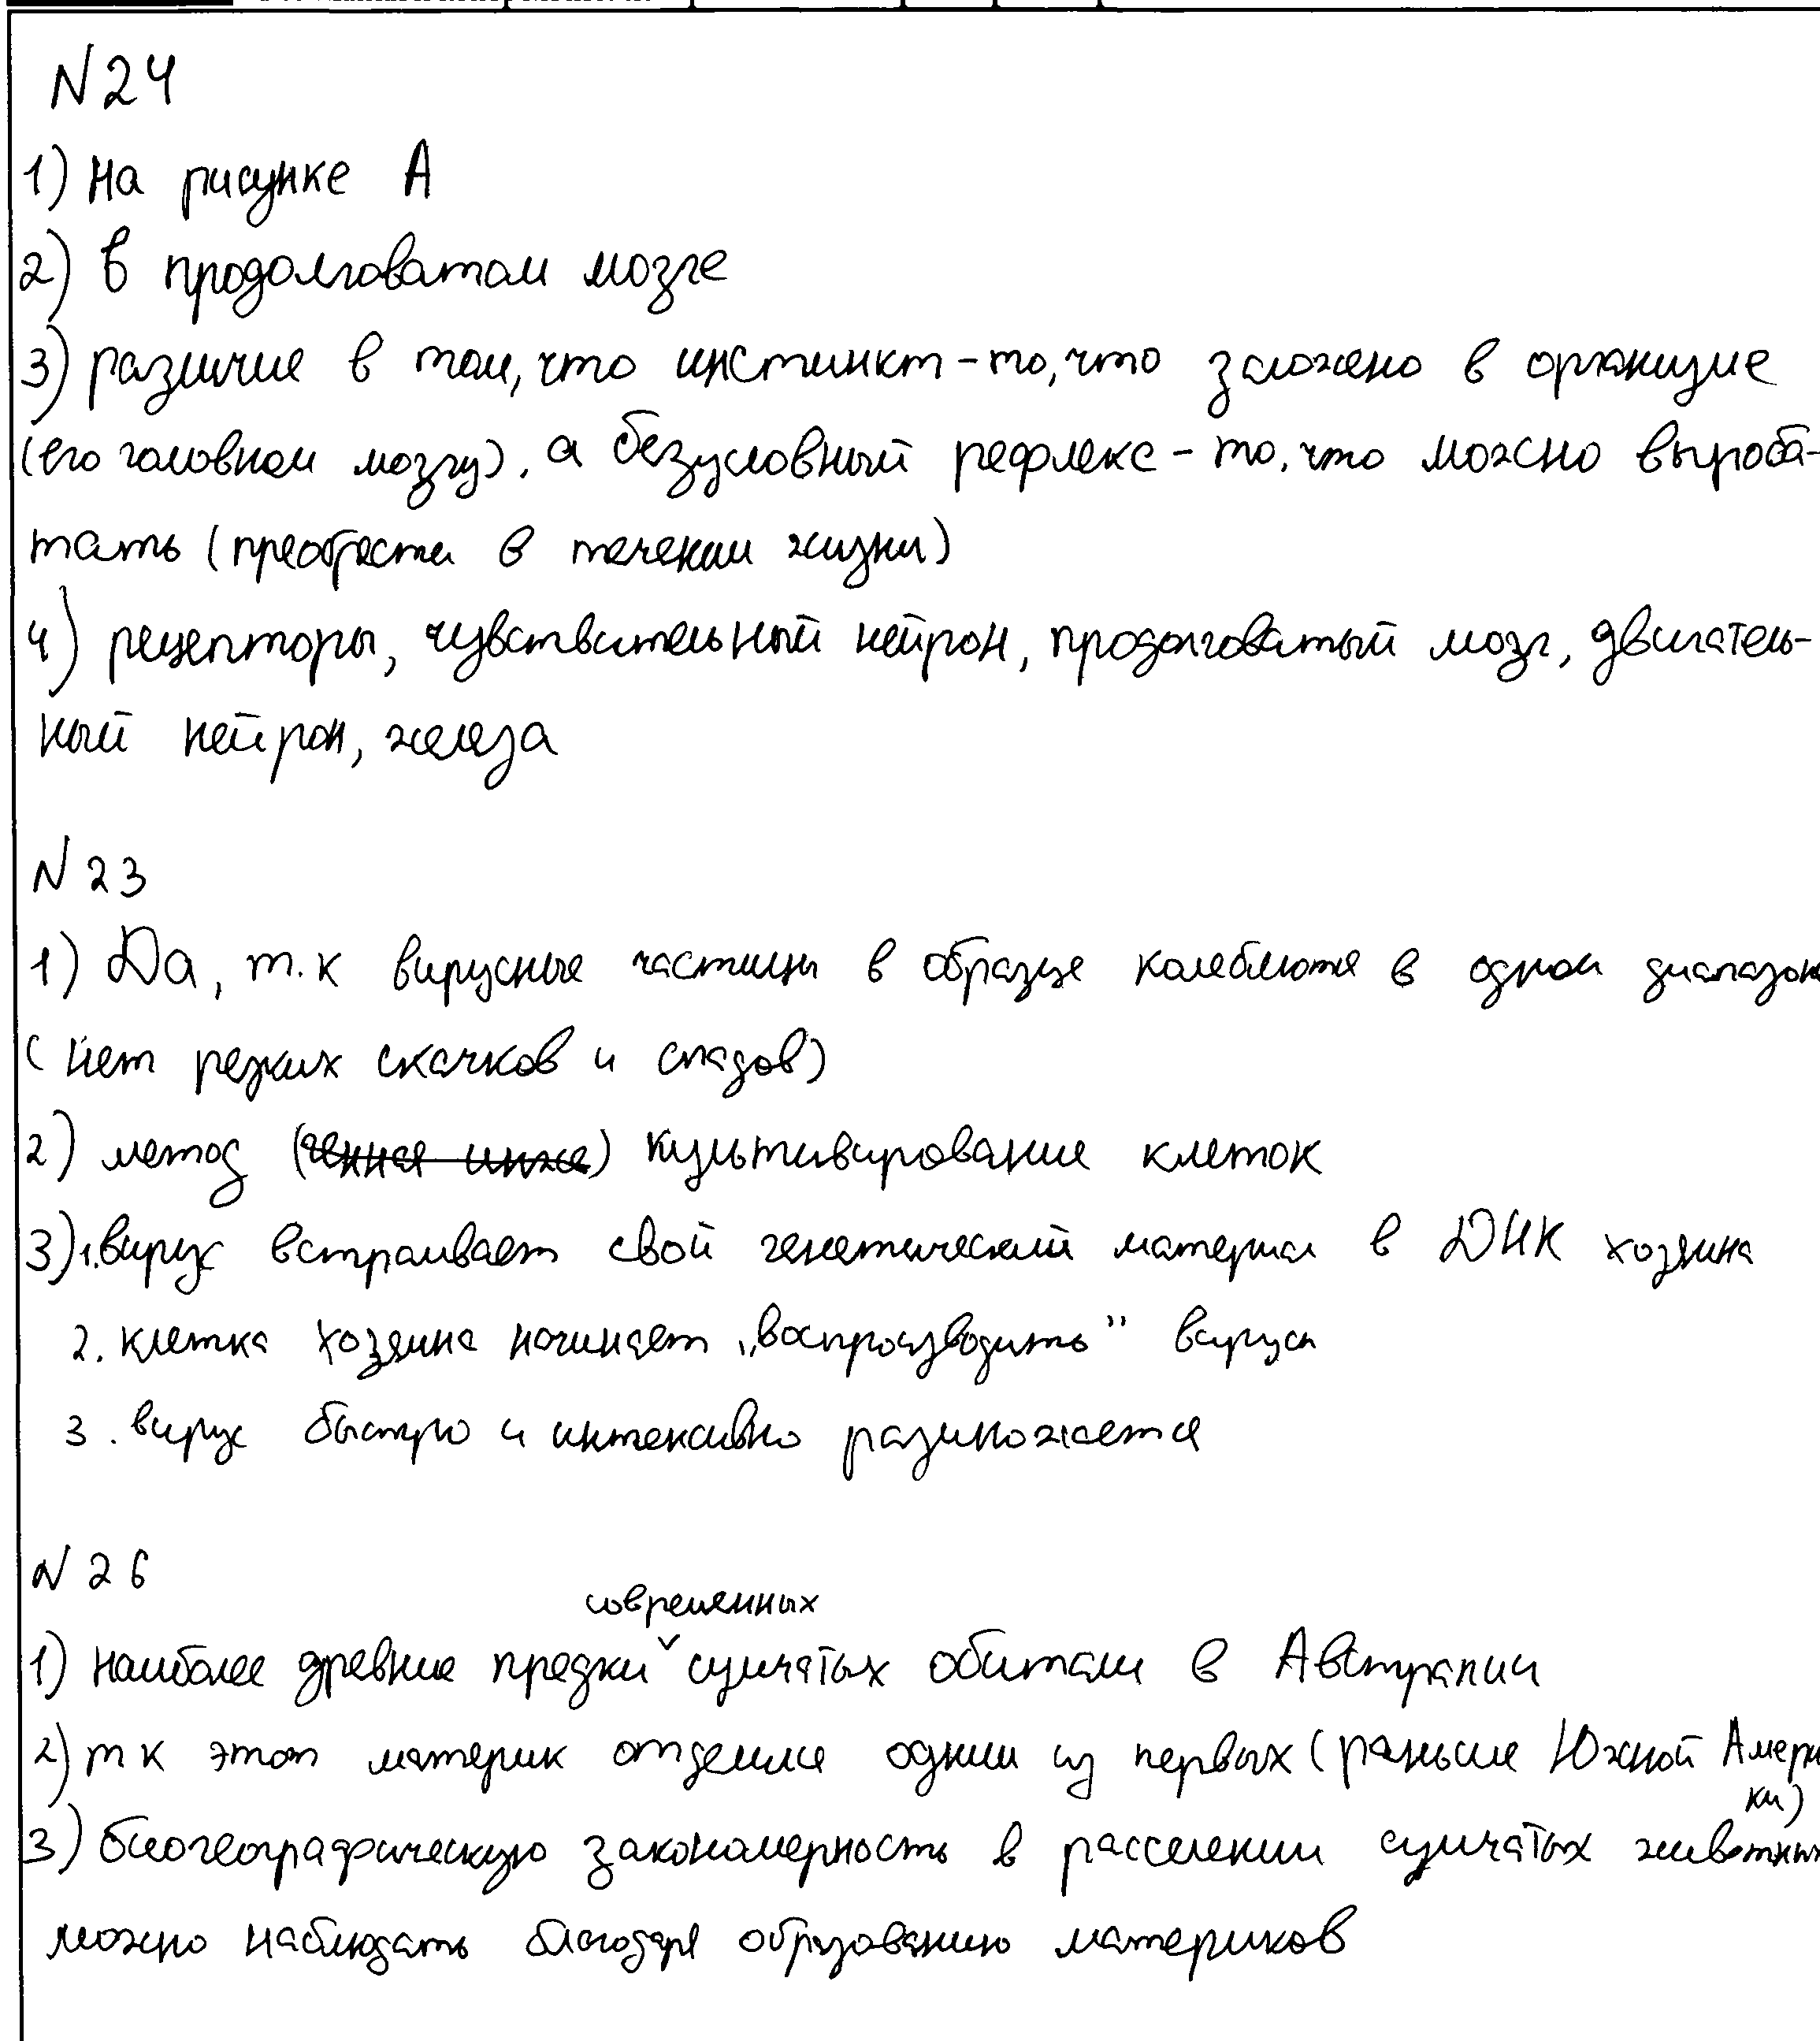 N24
1) На рисунке А
2) в продолговатом мозге
3) различие в том, что инстинкт - то, что заложено в организме
(его головном мозгу), а безусловный рефлекс - то, что можно выроба-
тать (преобрести в течении жизни)
4) рецепторы, чувствительный нейрон, продолговатый мозг, двигатель-
ный нейрон, железа
N23
1) Да, т.к вирусные частицы в образце колеблются в одном диапазоне
(нет резких скачков и спадов)
2) метод (генная инже) культивирование клеток
3) 1. вирус встраивает свой генетический материал в ДНК хозяина
2. клетка хозяина начинает "воспроизводить" вирусы
3. вирус быстро и интенсивно размножается
N26
современных
1) наиболее древние предки сумчатых обитали в Австралии
2) т к этот материк отделился одним из первых (раньше Южной Амери
ки)
3) биогеографическую закономерность в расселении сумчатых животных
можно наблюдать благодаря образованию материков